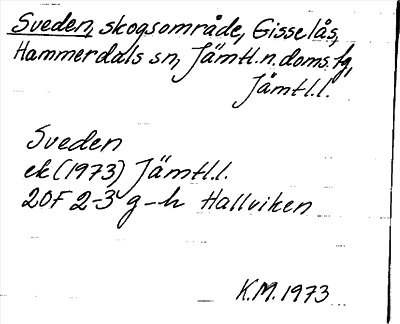 Sveden, skogsområde, Gisselås,
Hammerdals sn, Jämtl.n.doms.fg,
Jämtl.l.
Sveden
ek (1973) Jämtl.l.
20F 2-3 g-h Hallviken
K.M. 1973